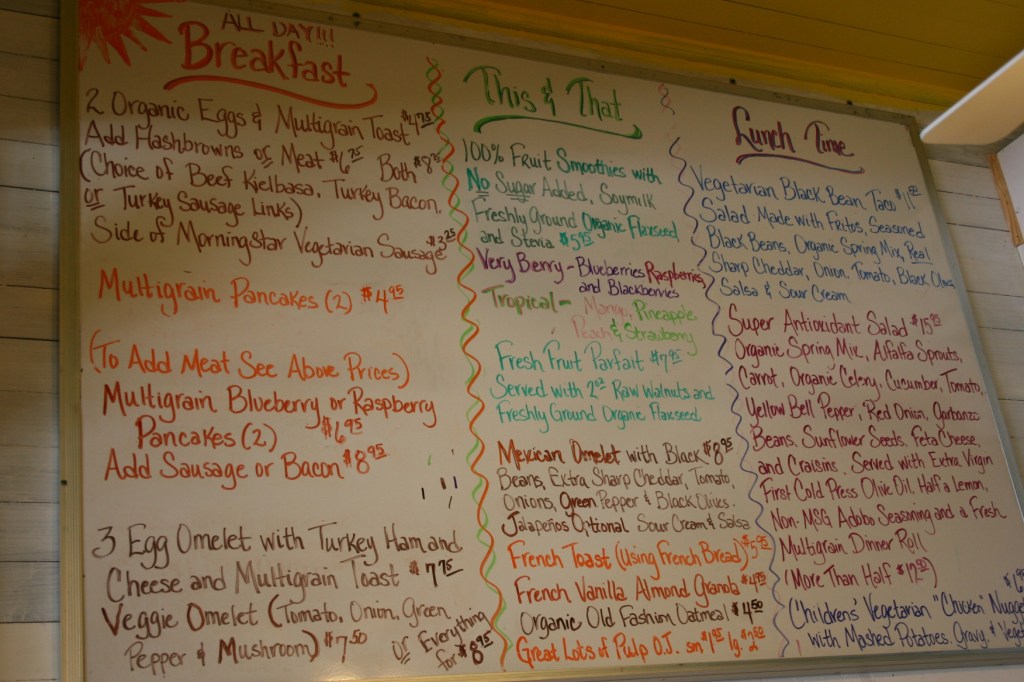 ALL DAY!!!
Breakfast
2 Organic Eggs & Multigrain Toast $4.75
Add Hashbrowns or Meat $6.75 Both $8.95
(Choice of Beef Kielbasa, Turkey Bacon,
or Turkey Sausage Links)
Side of Morningstar Vegetarian Sausage $3.25
Multigrain Pancakes (2) $4.95
(To Add Meat See Above Prices)
Multigrain Blueberry or Raspberry
Pancakes (2) $6.95
Add Sausage or Bacon $8.95
3 Egg Omelet with Turkey Ham and
Cheese and Multigrain Toast $7.75
Veggie Omelet (Tomato, Onion, Green
Pepper & Mushroom) $7.50
or Everything
for $8.95
This & That
100% Fruit Smoothies with
No Sugar Added, Soymilk
Freshly Ground Organic Flaxseed
and Stevia $5.95
Very Berry - Blueberries Raspberries
and Blackberries
Tropical - Mango, Pineapple
Peach & Strawberry
Fresh Fruit Parfait $7.95
Served with Raw Walnuts and
Freshly Ground Organic Flaxseed
Mexican Omelet with Black $8.95
Beans, Extra Sharp Cheddar, Tomato,
Onions, Green Pepper & Black Olives.
Jalapeños Optional Sour Cream & Salsa
French Toast (Using French Bread) $5.95
French Vanilla Almond Granola $4.95
Organic Old Fashion Oatmeal $4.50
Great Lots of Pulp O.J. sm $1.95 lg. $2.50
Lunch Time
Vegetarian Black Bean Taco
Salad Made with Fritos, Seasoned
Black Beans, Organic Spring Mix, Real
Sharp Cheddar, Onion, Tomato, Black Olives
Salsa & Sour Cream
Super Antioxidant Salad $15.95
Organic Spring Mix, Alfalfa Sprouts,
Carrot, Organic Celery, Cucumber, Tomato,
Yellow Bell Pepper, Red Onion, Garbanzo
Beans, Sunflower Seeds, Feta Cheese,
and Craisins. Served with Extra Virgin
First Cold Press Olive Oil, Half a Lemon,
Non-MSG Adobo Seasoning and a Fresh
Multigrain Dinner Roll
(More Than Half $12.00)
Childrens' Vegetarian "Chicken" Nugget
with Mashed Potatoes, Gravy, &